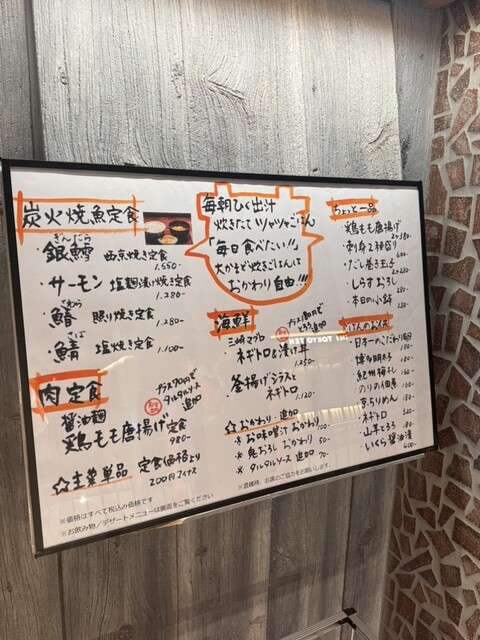 炭火焼魚定食
ぎんだら
・銀鱈 西京焼き定食
1.550-
・サーモン 塩麹漬け焼き定食
1.280-
さわら
・鰆 照り焼き定食
1.280-
さば
・鯖 塩焼き定食
1.100-
肉定食
プラス70円で
タルタルソース
追加
醤油麹
鶏もも唐揚げ定食
980-
☆主菜単品 定食価格より
200円マイナス
※価格はすべて税込み価格です
※お飲み物/デザートメニューは裏面をご覧ください
毎朝ひく出汁
炊きたてツヤツヤごはん
「毎日食べたい!!」
大かまど炊きごはんは
おかわり自由!!!
海鮮
プラス180円で
とろろ追加
三崎マグロ
ネギトロ&漬け丼
1.250-
・釜揚げシラスと
ネギトロ
1.120-
☆おかわり・追加
※お味噌汁おかわり 100
※鬼おろし おかわり 50-
※タルタルソース 追加 70-
※混雑時、お席のご協力をお願いします。
ちょっと一品
・鶏もも唐揚げ
・刺身2種盛り
・だし巻き玉子
・しらすおろし
280-
・本日の小鉢
230-
ごはんのお供
・博多明太子
・紀州梅干し
160-
・のりの佃煮
・京ちりめん
180-
・ネギトロ
320-
・山芋とろろ
180-
・いくら醤油漬
400-